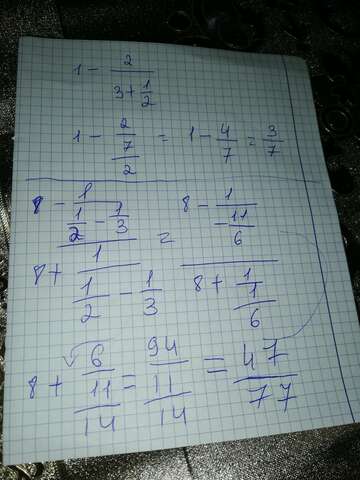 1 - 2/(3 + 1/2)
1 - 2/(7/2) = 1 - 4/7 = 3/7
(8 - 1/(1/2 - 1/3))/(8 + 1/(1/2 - 1/3)) = (8 - 1/(-11/6))/(8 + 1/(1/6))
8 + 6/11/14 = 94/11/14 = 47/77